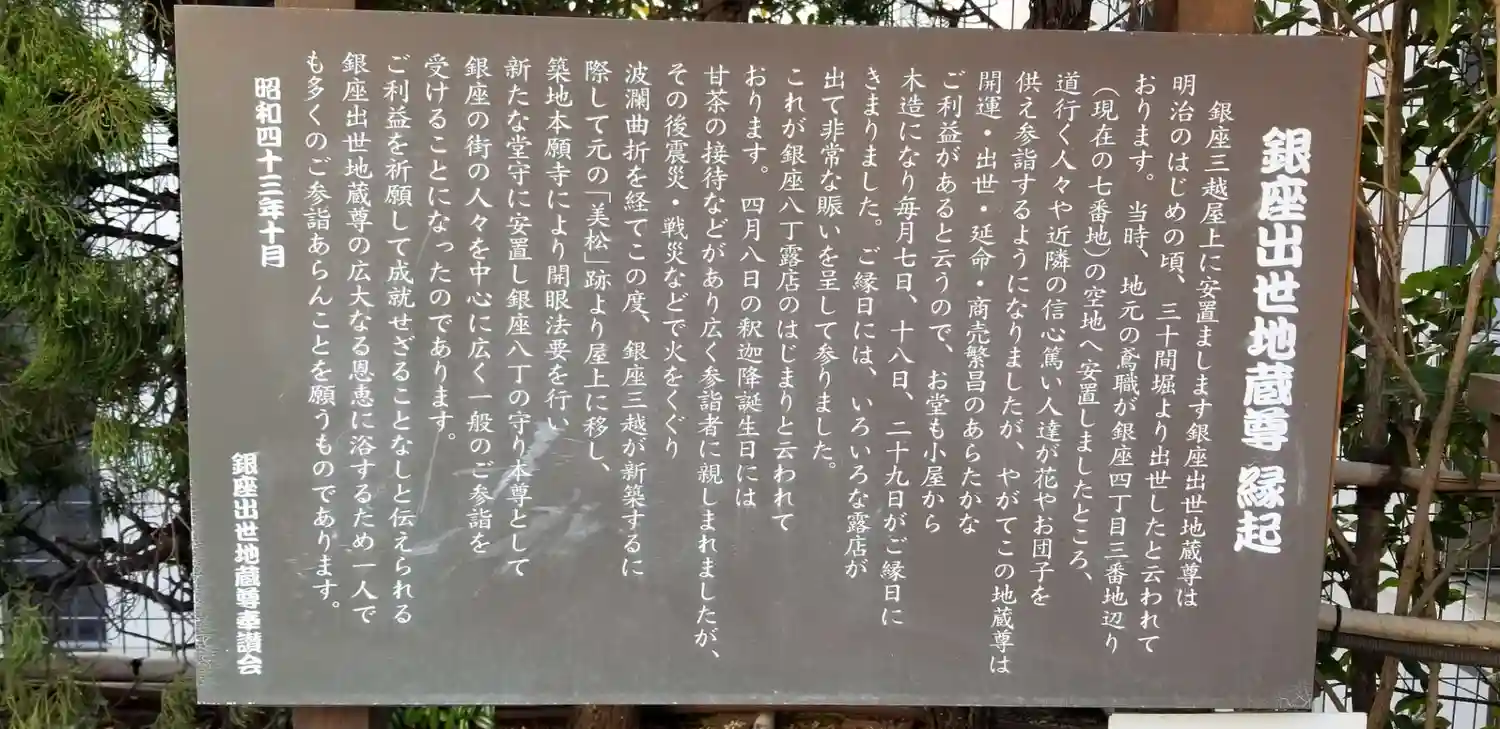 銀座出世地蔵尊 縁起
銀座三越屋上に安置まします銀座出世地蔵尊は
明治のはじめの頃、三十間堀より出世したと云われて
おります。当時、地元の鳶職が銀座四丁目三番地辺り
（現在の七番地）の空地へ安置しましたところ、
道行く人々や近隣の信心篤い人達が花やお団子を
供え参詣するようになりましたが、やがてこの地蔵尊は
開運・出世・延命・商売繁昌のあらたかな
ご利益があると云うので、お堂も小屋から
木造になり毎月七日、十八日、二十九日がご縁日に
きまりました。ご縁日には、いろいろな露店が
出て非常な賑いを呈して参りました。
これが銀座八丁露店のはじまりと云われて
おります。四月八日の釈迦降誕生日には
甘茶の接待などがあり広く参詣者に親しまれましたが、
その後震災・戦災などで火をくぐり
波瀾曲折を経てこの度、銀座三越が新築するに
際して元の「美松」跡より屋上に移し、
築地本願寺により開眼法要を行い
新たな堂守に安置し銀座八丁の守り本尊として
銀座の街の人々を中心に広く一般のご参詣を
受けることになったのであります。
ご利益を祈願して成就せざることなしと伝えられる
銀座出世地蔵尊の広大なる恩恵に浴するため一人で
も多くのご参詣あらんことを願うものであります。
昭和四十三年十月
銀座出世地蔵尊奉讃会